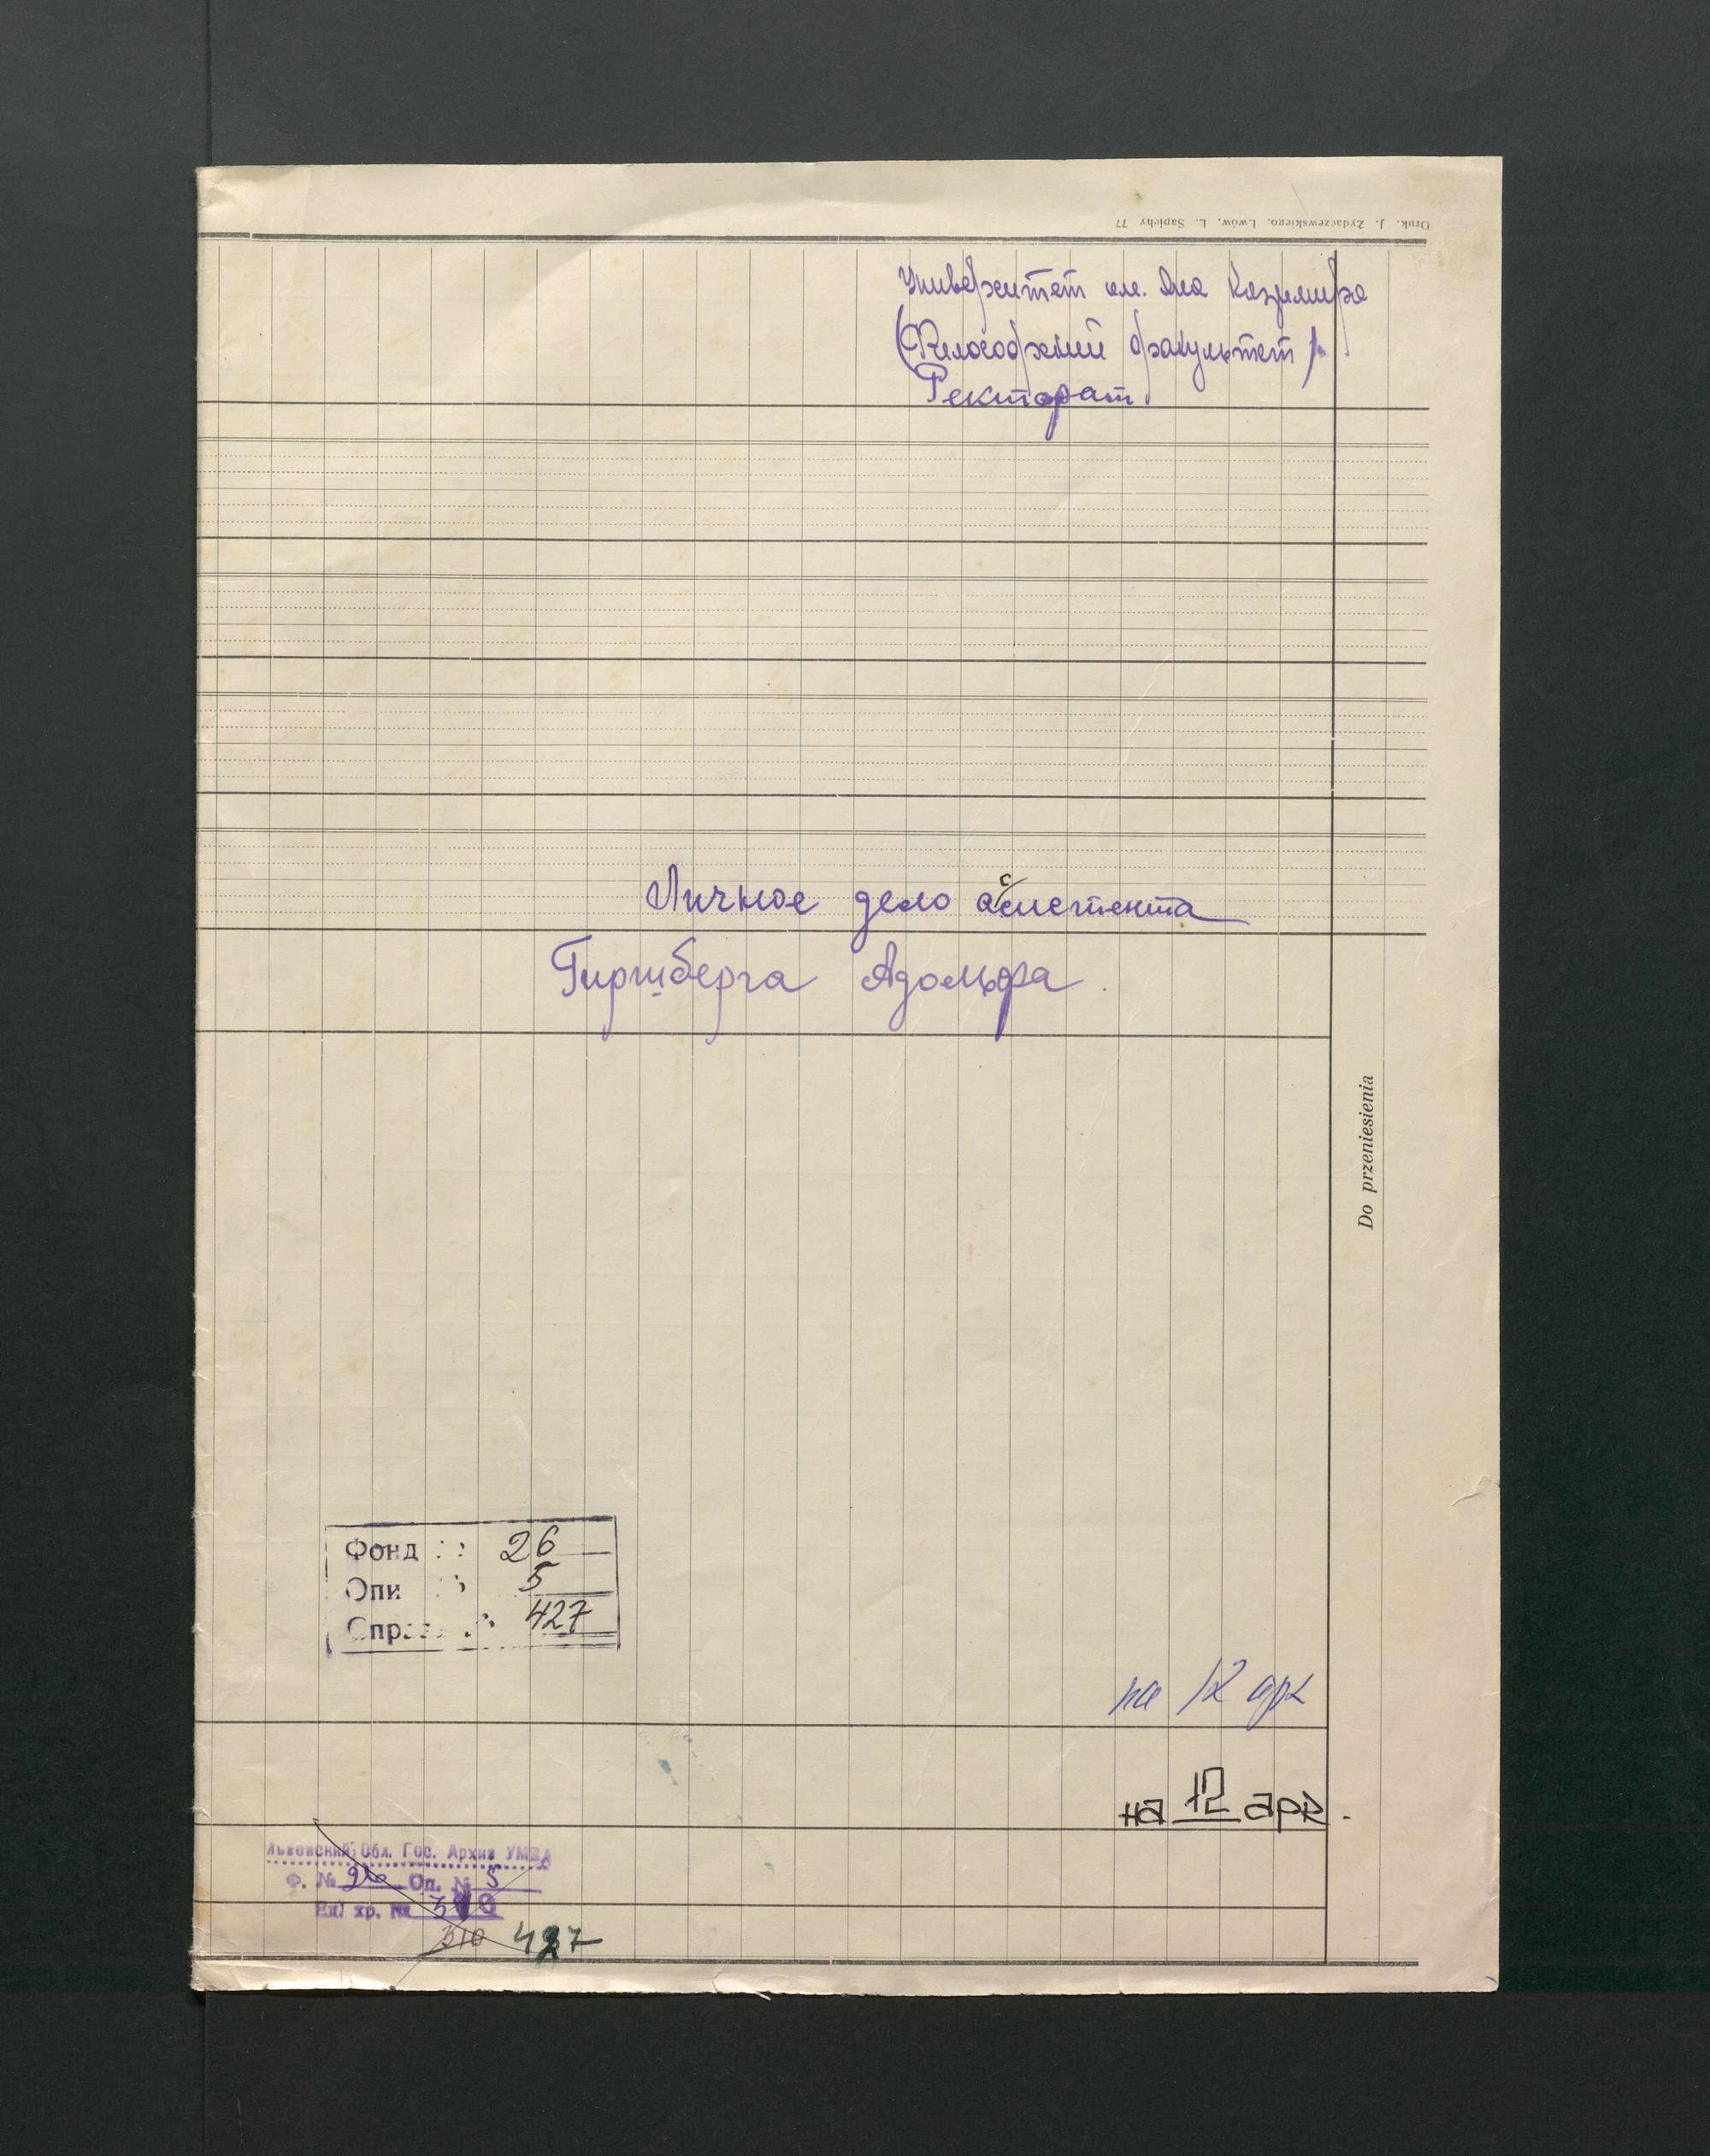 Druk. J. Żydaczewskiego, Lwów, L. Sapiehy 77
Университет им. Яна Казимира
(Философский факультет).
Ректорат.
Личное дело ассистента
Гиршберга Адольфа.
Do przeniesienia
Фонд 26
Опи 5
Спра 427
на 12 арк
на 12 арк.
Львовский Обл. Гос. Архив УМВД
Ф. № 26 Оп. № 5
Ед. хр. №
310 427